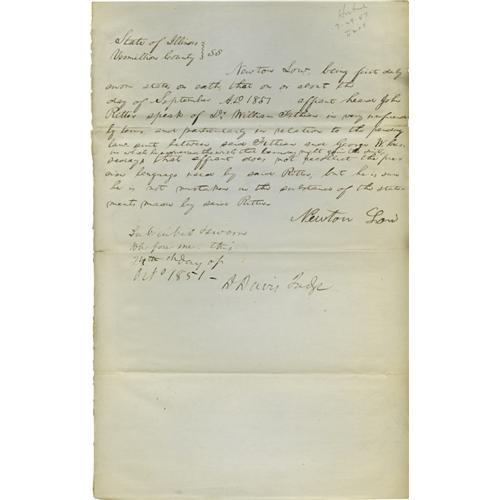 State of Illinois } SS
Vermillion County
Newton Low, being first duly
sworn states on oath, that on or about the
day of September A.D. 1851 affiant heard John
Ritter speak of Dr William Fithian in very unfriend
ly terms, and particularly in relation to the pending
law suit between said Fithian and George W.
in which he
says that affiant does not recollect the pre
cise language used by said Ritter, but he is sure
he is not mistaken in the substance of the state
ments made by said Ritter
Newton Low
Subscribed & sworn
before me this
day of
Octo 1851 -
D Davis Judge